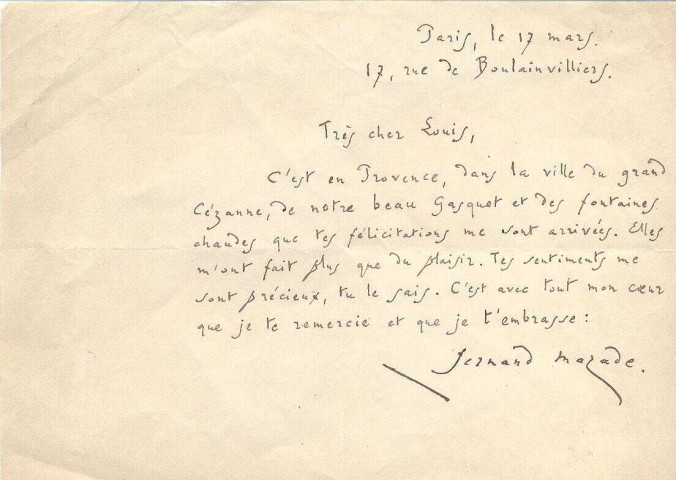 Paris, le 17 mars.
17, rue de Boulainvilliers.
Très cher Louis,
C'est en Provence, dans la ville du grand
Cézanne, de notre beau Gasquet et des fontaines
chaudes que tes félicitations me sont arrivées. Elles
m'ont fait plus que du plaisir. Tes sentiments me
sont précieux, tu le sais. C'est avec tout mon cœur
que je te remercie et que je t'embrasse :
Fernand Mazade.